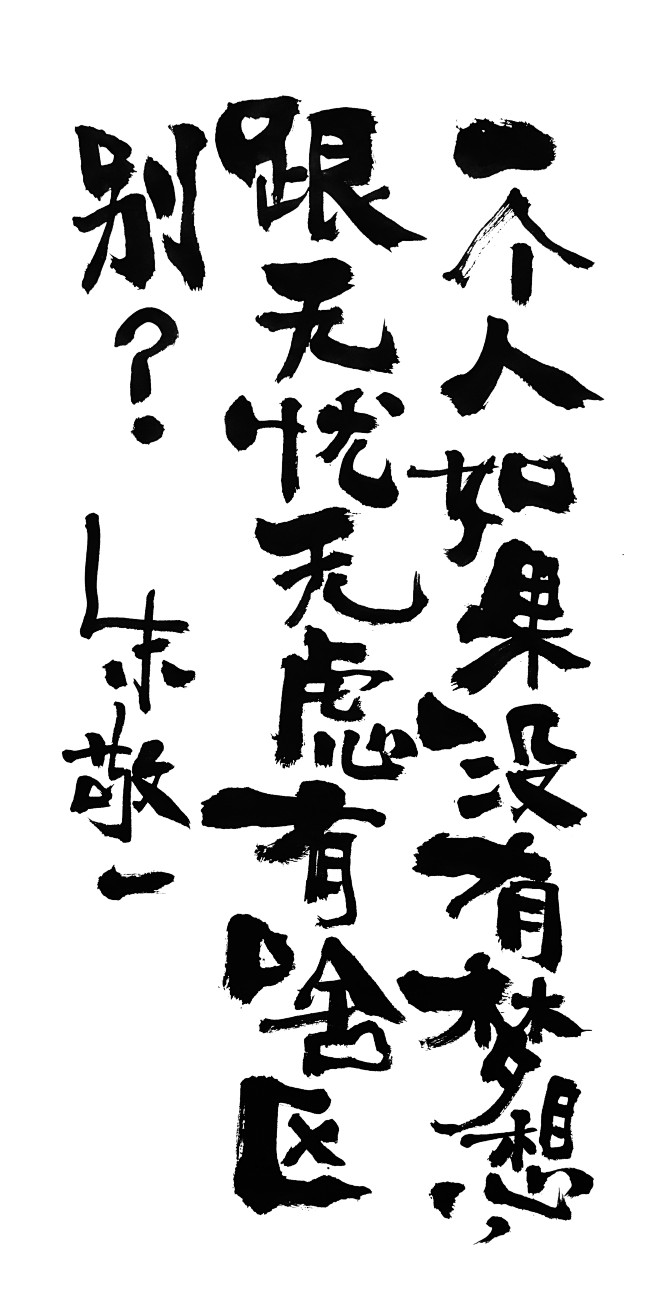 一个人如果没有梦想,
跟无忧无虑有啥区
别?
朱敬一